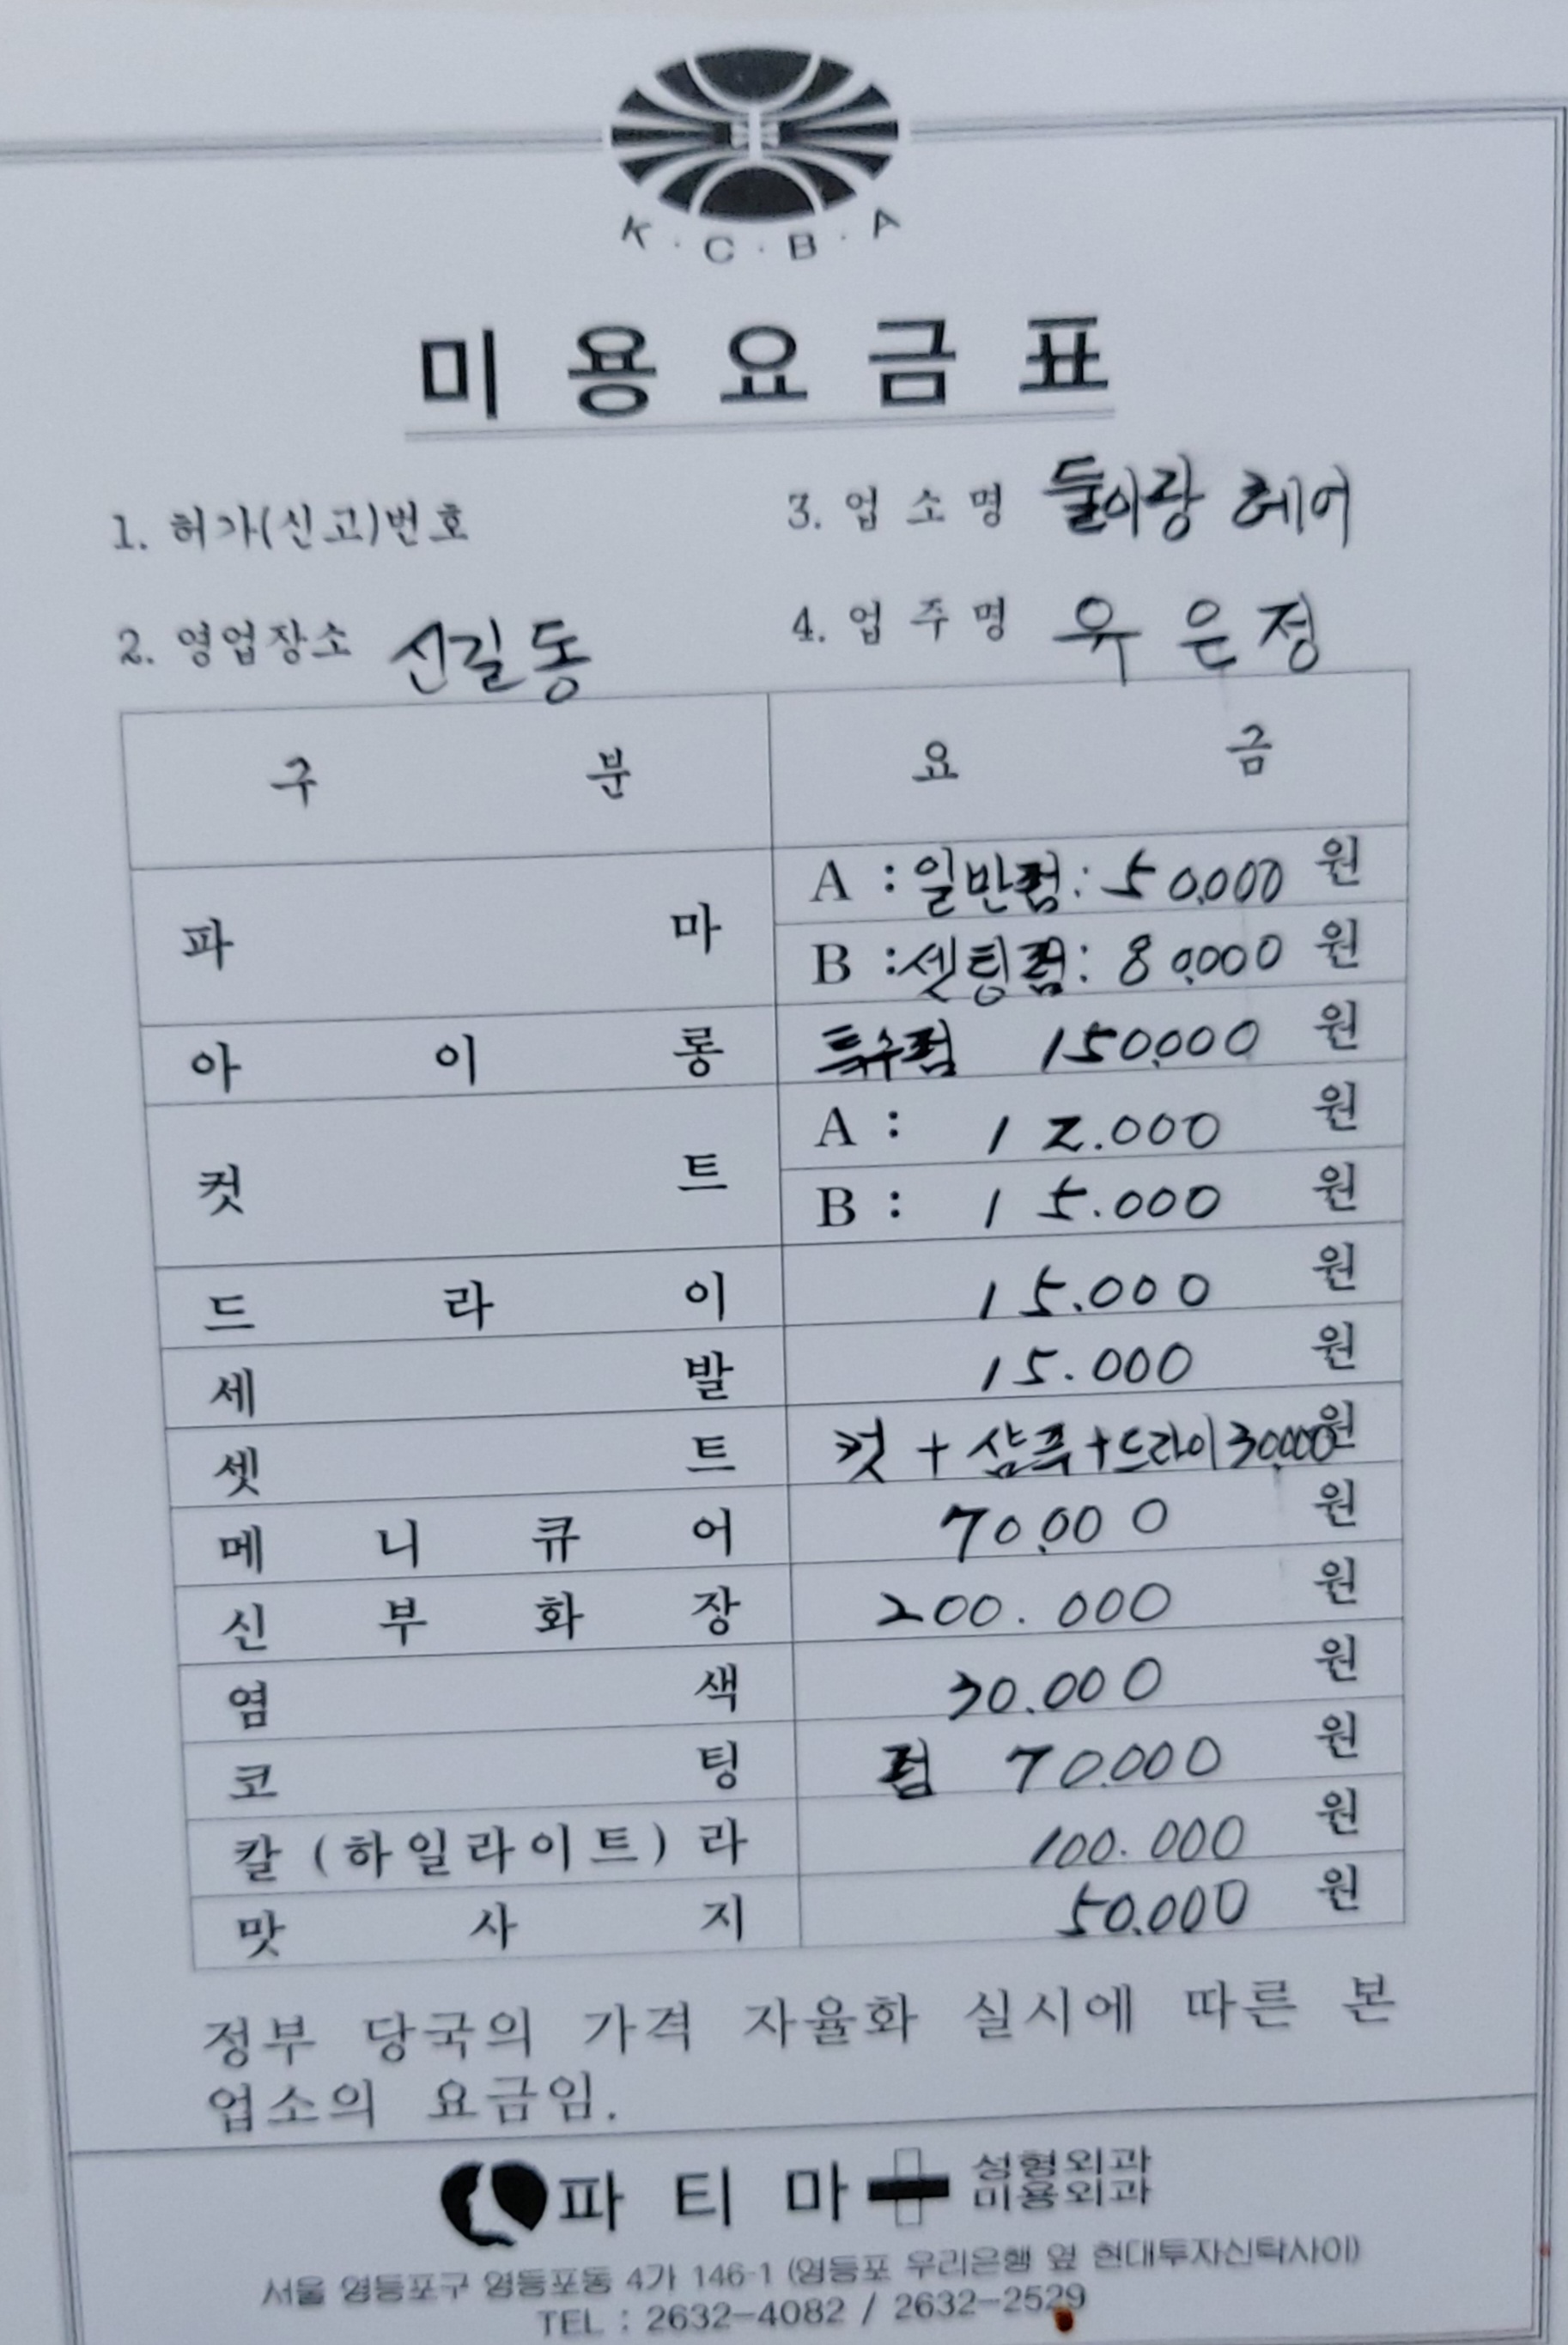 K·C·B·A
미용요금표
1. 허가(신고)번호
3. 업소명 둘이랑 헤어
2. 영업장소 신길동
4. 업주명 유은정
구분 요금
파마 A : 일반펌: 50,000 원
B : 셋팅펌: 80,000 원
아이롱 특수펌 150,000 원
컷트 A : 12.000 원
B : 15.000 원
드라이 15.000 원
세발 15.000 원
셋트 컷 + 샴푸 + 드라이 30,000 원
메니큐어 70,000 원
신부화장 200.000 원
염색 30.000 원
코팅 펌 70.000 원
칼(하일라이트)라 100.000 원
맛사지 50.000 원
정부 당국의 가격 자율화 실시에 따른 본
업소의 요금임.
파티마 성형외과
미용외과
서울 영등포구 영등포동 4가 146-1 (영등포 우리은행 옆 현대투자신탁사이)
TEL : 2632-4082 / 2632-2529